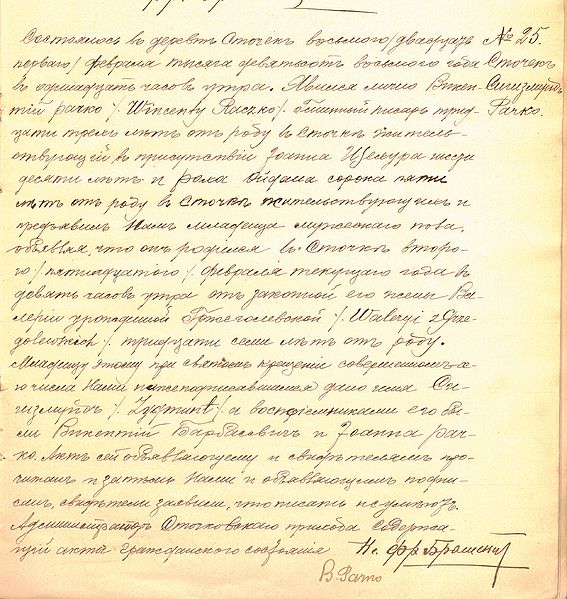 Состоялось въ деревнѣ Сточек восьмого /двадцать
перваго/ февраля тысяча девятьсотъ восьмого года
въ одинадцать часовъ утра. Явился лично Викен-
тій Рачко /. Wincenty Raczko/. Гминный писарь трид-
цати трехъ лѣтъ отъ роду въ Сточкѣ житель-
ствующій въ присутствіи Іоанна
десяти лѣтъ и сорока пяти
лѣтъ отъ роду въ Сточкѣ жительствующихъ и
предъявилъ Намъ младенца мужескаго пола,
объявляя, что онъ родился въ Сточкѣ второ-
го /. пятнадцатого /. февраля текущаго года въ
девять часовъ утра отъ законной его жены Ва-
леріи урожденной /. Waleryi z Grze-
/. тридцати семи лѣтъ отъ роду.
Младенцу этому при святомъ крещеніи совершенномъ
числа Нами нижеподписавшимся дано имя Си-
гизмундъ /. Zygmunt /. а воспріемниками его бы-
ли Викентій и Іоанна Рач-
ко. Актъ сей объявляющему и свидѣтелямъ про-
читанъ и затѣмъ Нами и объявляющимъ подпи-
санъ, свидѣтели заявили, что писать не умѣютъ.
Администраторъ Сточковскаго прихода Содержа-
щій акты гражданскаго состоянія Кс. Фр.
№ 25.
Сточекъ
Сигизмундъ
Рачко.